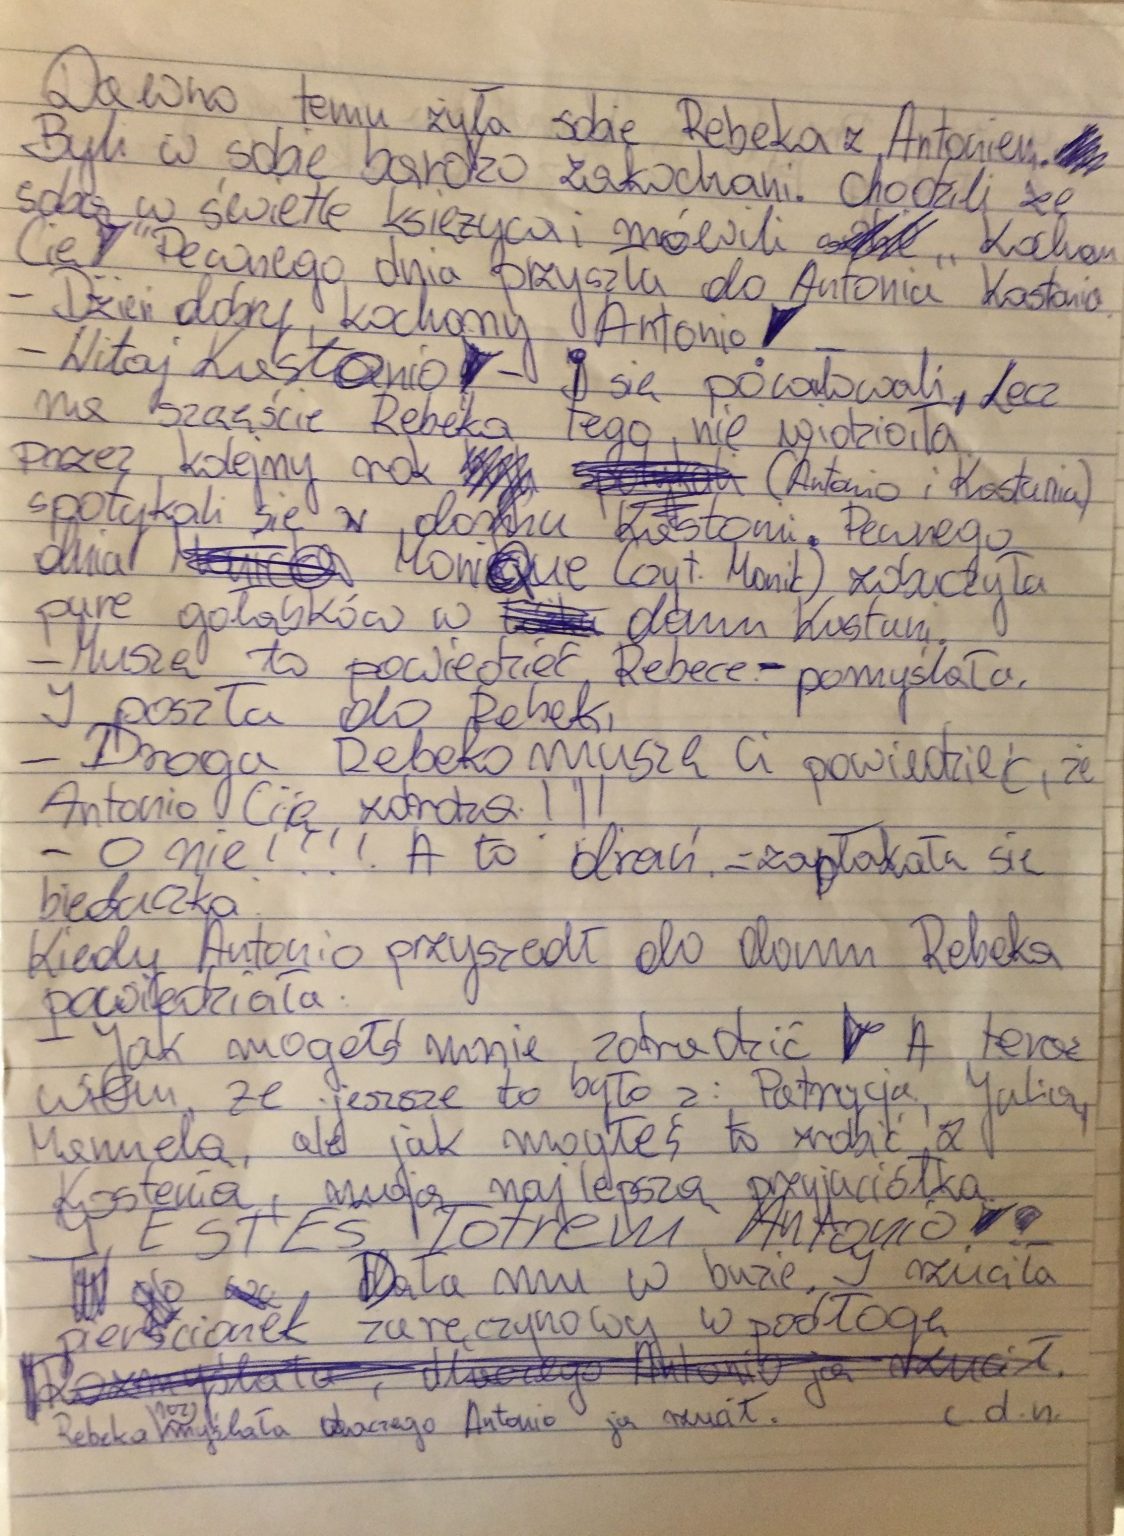 Dawno temu żyła sobie Rebeka z Antoniem.
Byli w sobie bardzo zakochani. Chodzili ze
sobą w świetle księzyca i mówili „Kocham
Cię!" Pewnego dnia przyszła do Antonia Kastania.
- Dzień dobry, kochany Antonio!
- Witaj Kastanio! - I się pocałowali, Lecz
na szczęście Rebeka tego nie widziała
przez kolejny rok (Antonio i Kastania)
spotykali się w domu Kastani. Pewnego
dnia Monique (czyt. Monik) zobaczyła
pare gołąbków w domu Kastani.
- Muszą to powiedzieć Rebece - pomyślała.
I poszła do Rebeki
- Droga Rebeko muszą Ci powiedzieć, że
Antonio Cię zdradza!!!
- O nie!!!!! A to drań. - zapłakała się
biedaczka.
Kiedy Antonio przyszedł do domu Rebeka
powiedziała:
- Jak mogełś mnie zdradzić! A teraz
wiem, że jeszsze to było z: Patrycją, Julią,
Manuelą, ale jak mogłeś to zrobić z
Kastanią, moją najlepszą przyjaciółką.
JESTEŚ Łotrem Antonio! -
Dała mu w buzie, I rzuciła
pierścionek zaręczynowy w podłogę
Rebeka rozmyślała dlaczego Antonio ją rzucił. c.d.n.